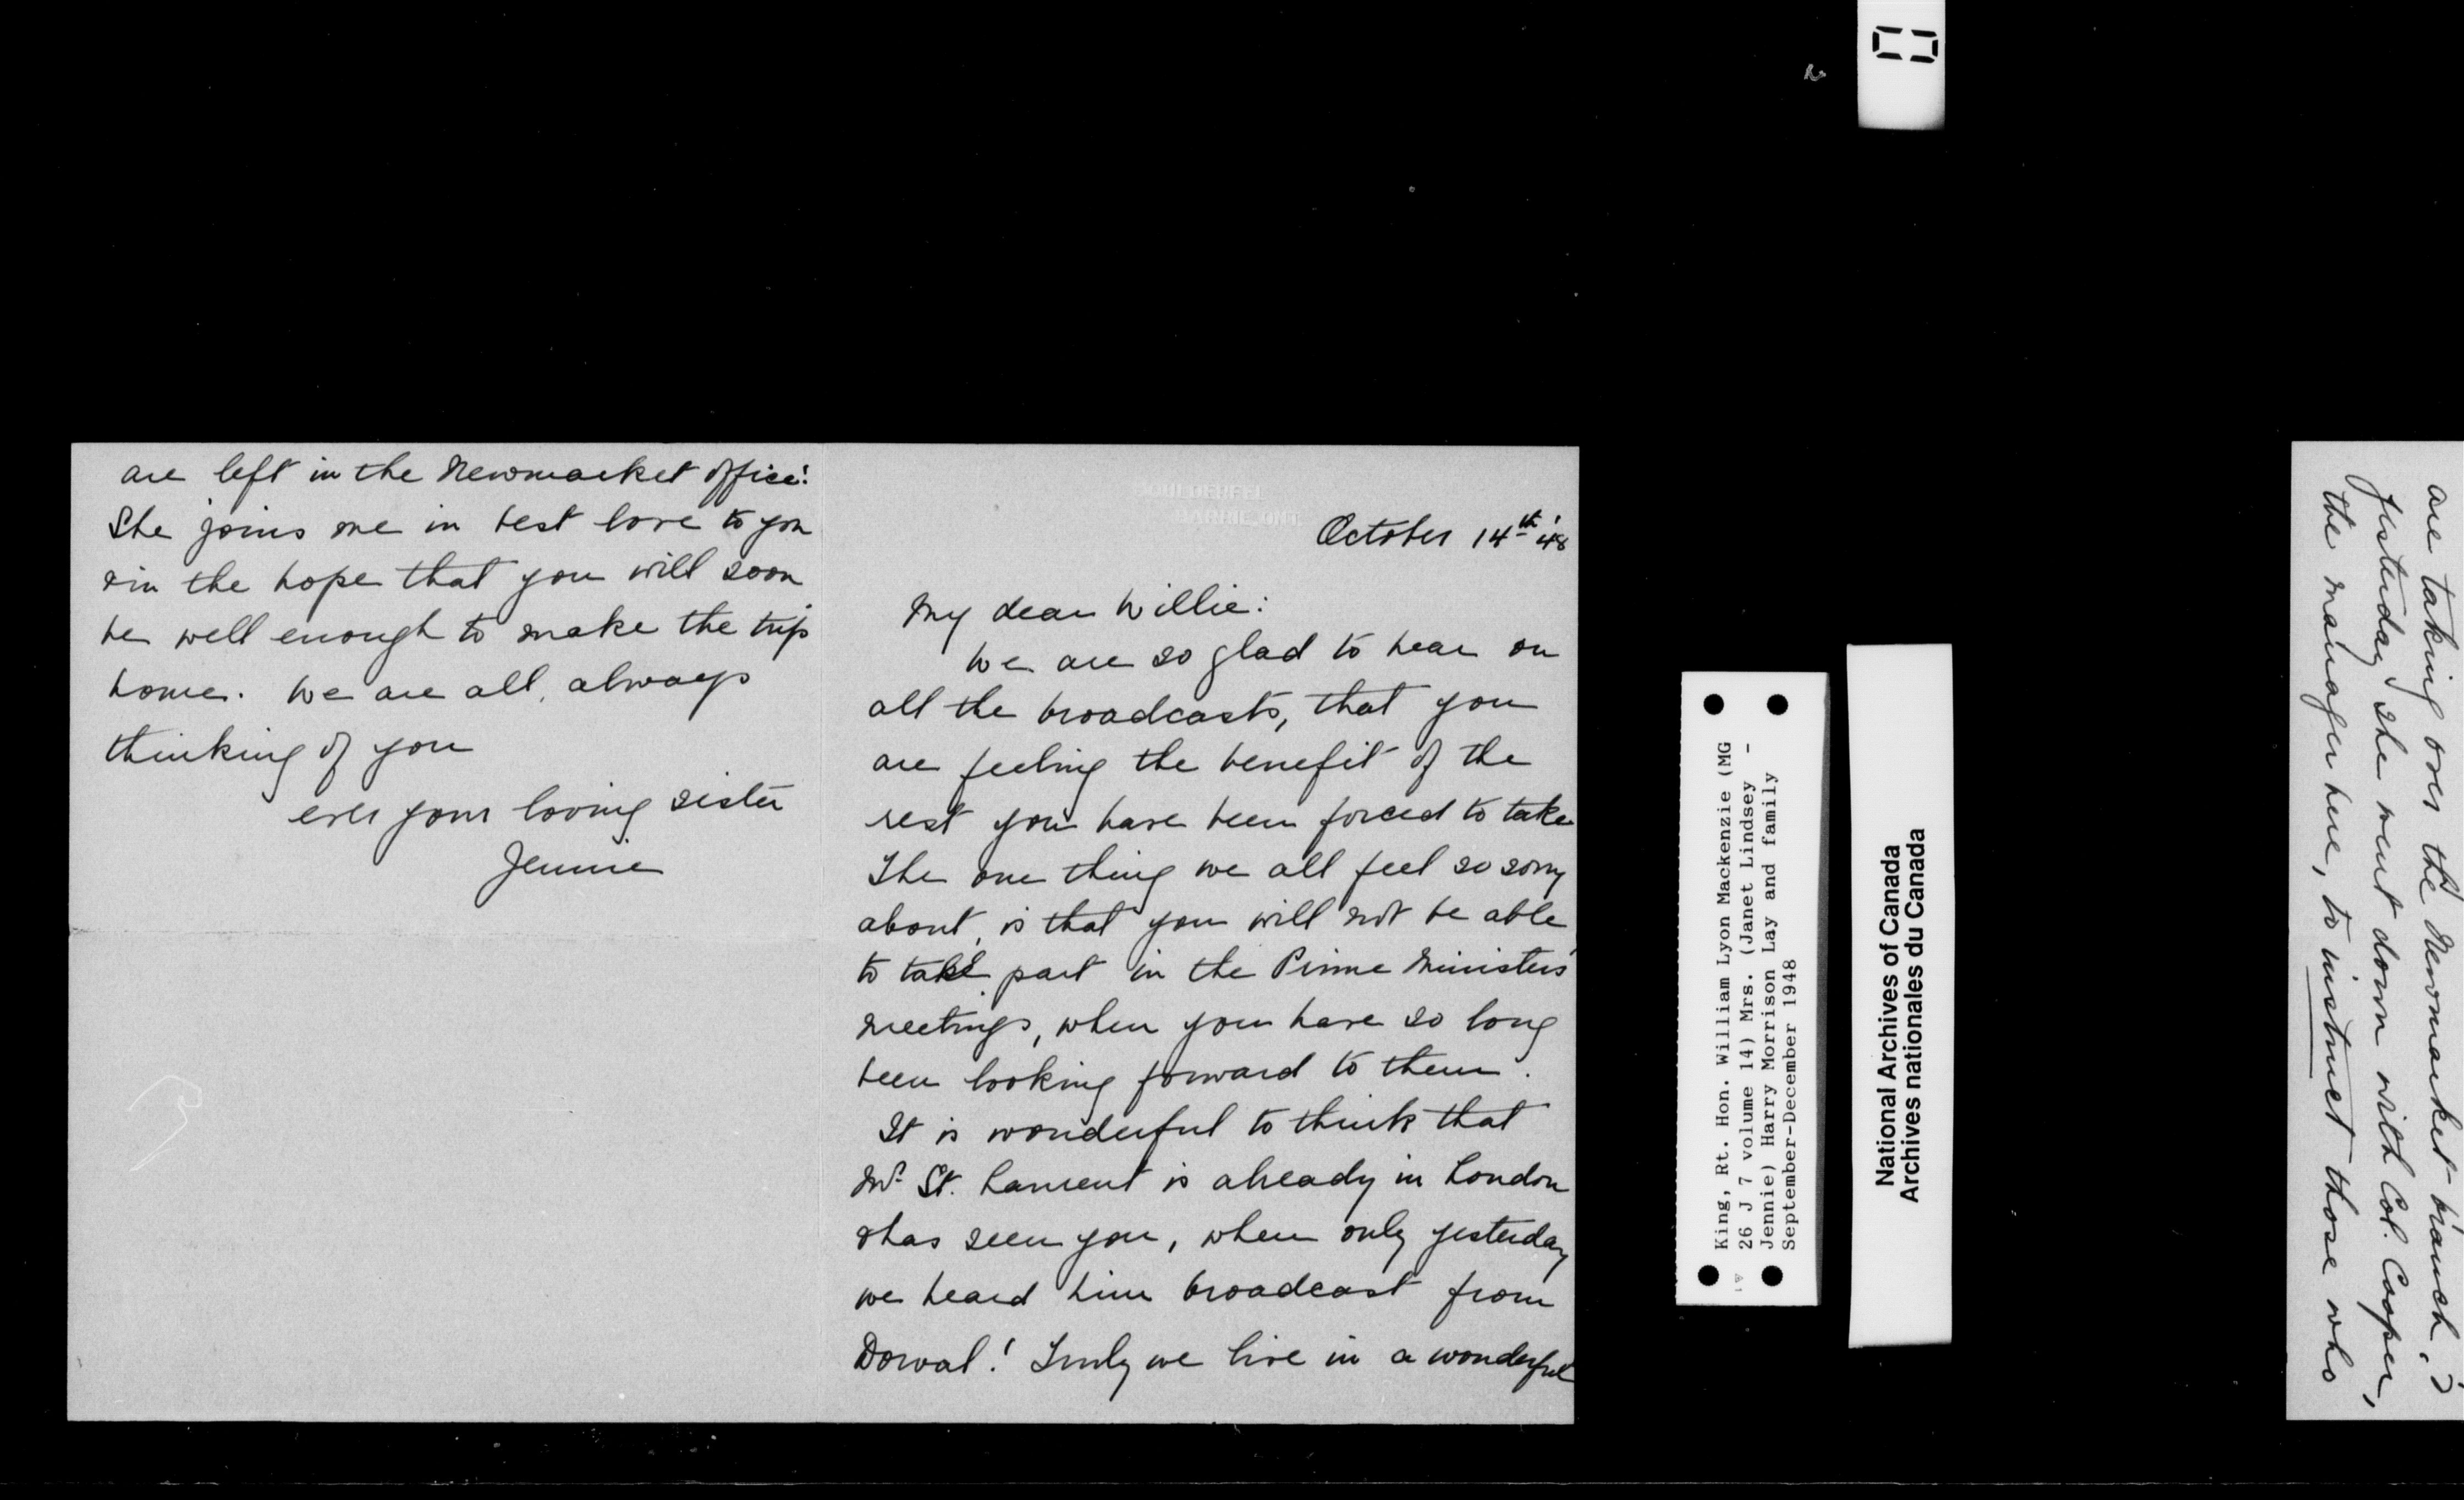 are left in the Newmarket office!
She joins me in best love to you
& in the hope that you will soon
be well enough to make the trip
home. We are all, always
thinking of you
ever your loving sister
Jennie
BARRIE, ONT.
October 14th '48
My dear Willie:
We are so glad to hear on
all the broadcasts, that you
are feeling the benefit of the
rest you have been forced to take
The one thing we all feel so sorry
about, is that you will not be able
to take part in the Prime Ministers'
meetings, when you have so long
been looking forward to them.
It is wonderful to think that
Mr. St. Laurent is already in London
& has seen you, when only yesterday
we heard him broadcast from
Dorval! Truly we live in a wonderful
King, Rt. Hon. William Lyon Mackenzie (MG
26 J 7 volume 14) Mrs. (Janet Lindsey -
Jennie) Harry Morrison Lay and family
September-December 1948
National Archives of Canada
Archives nationales du Canada
are taking over the Newmarket branch, &
yesterday she went down with Col. Cooper,
the manager here, to instruct those who